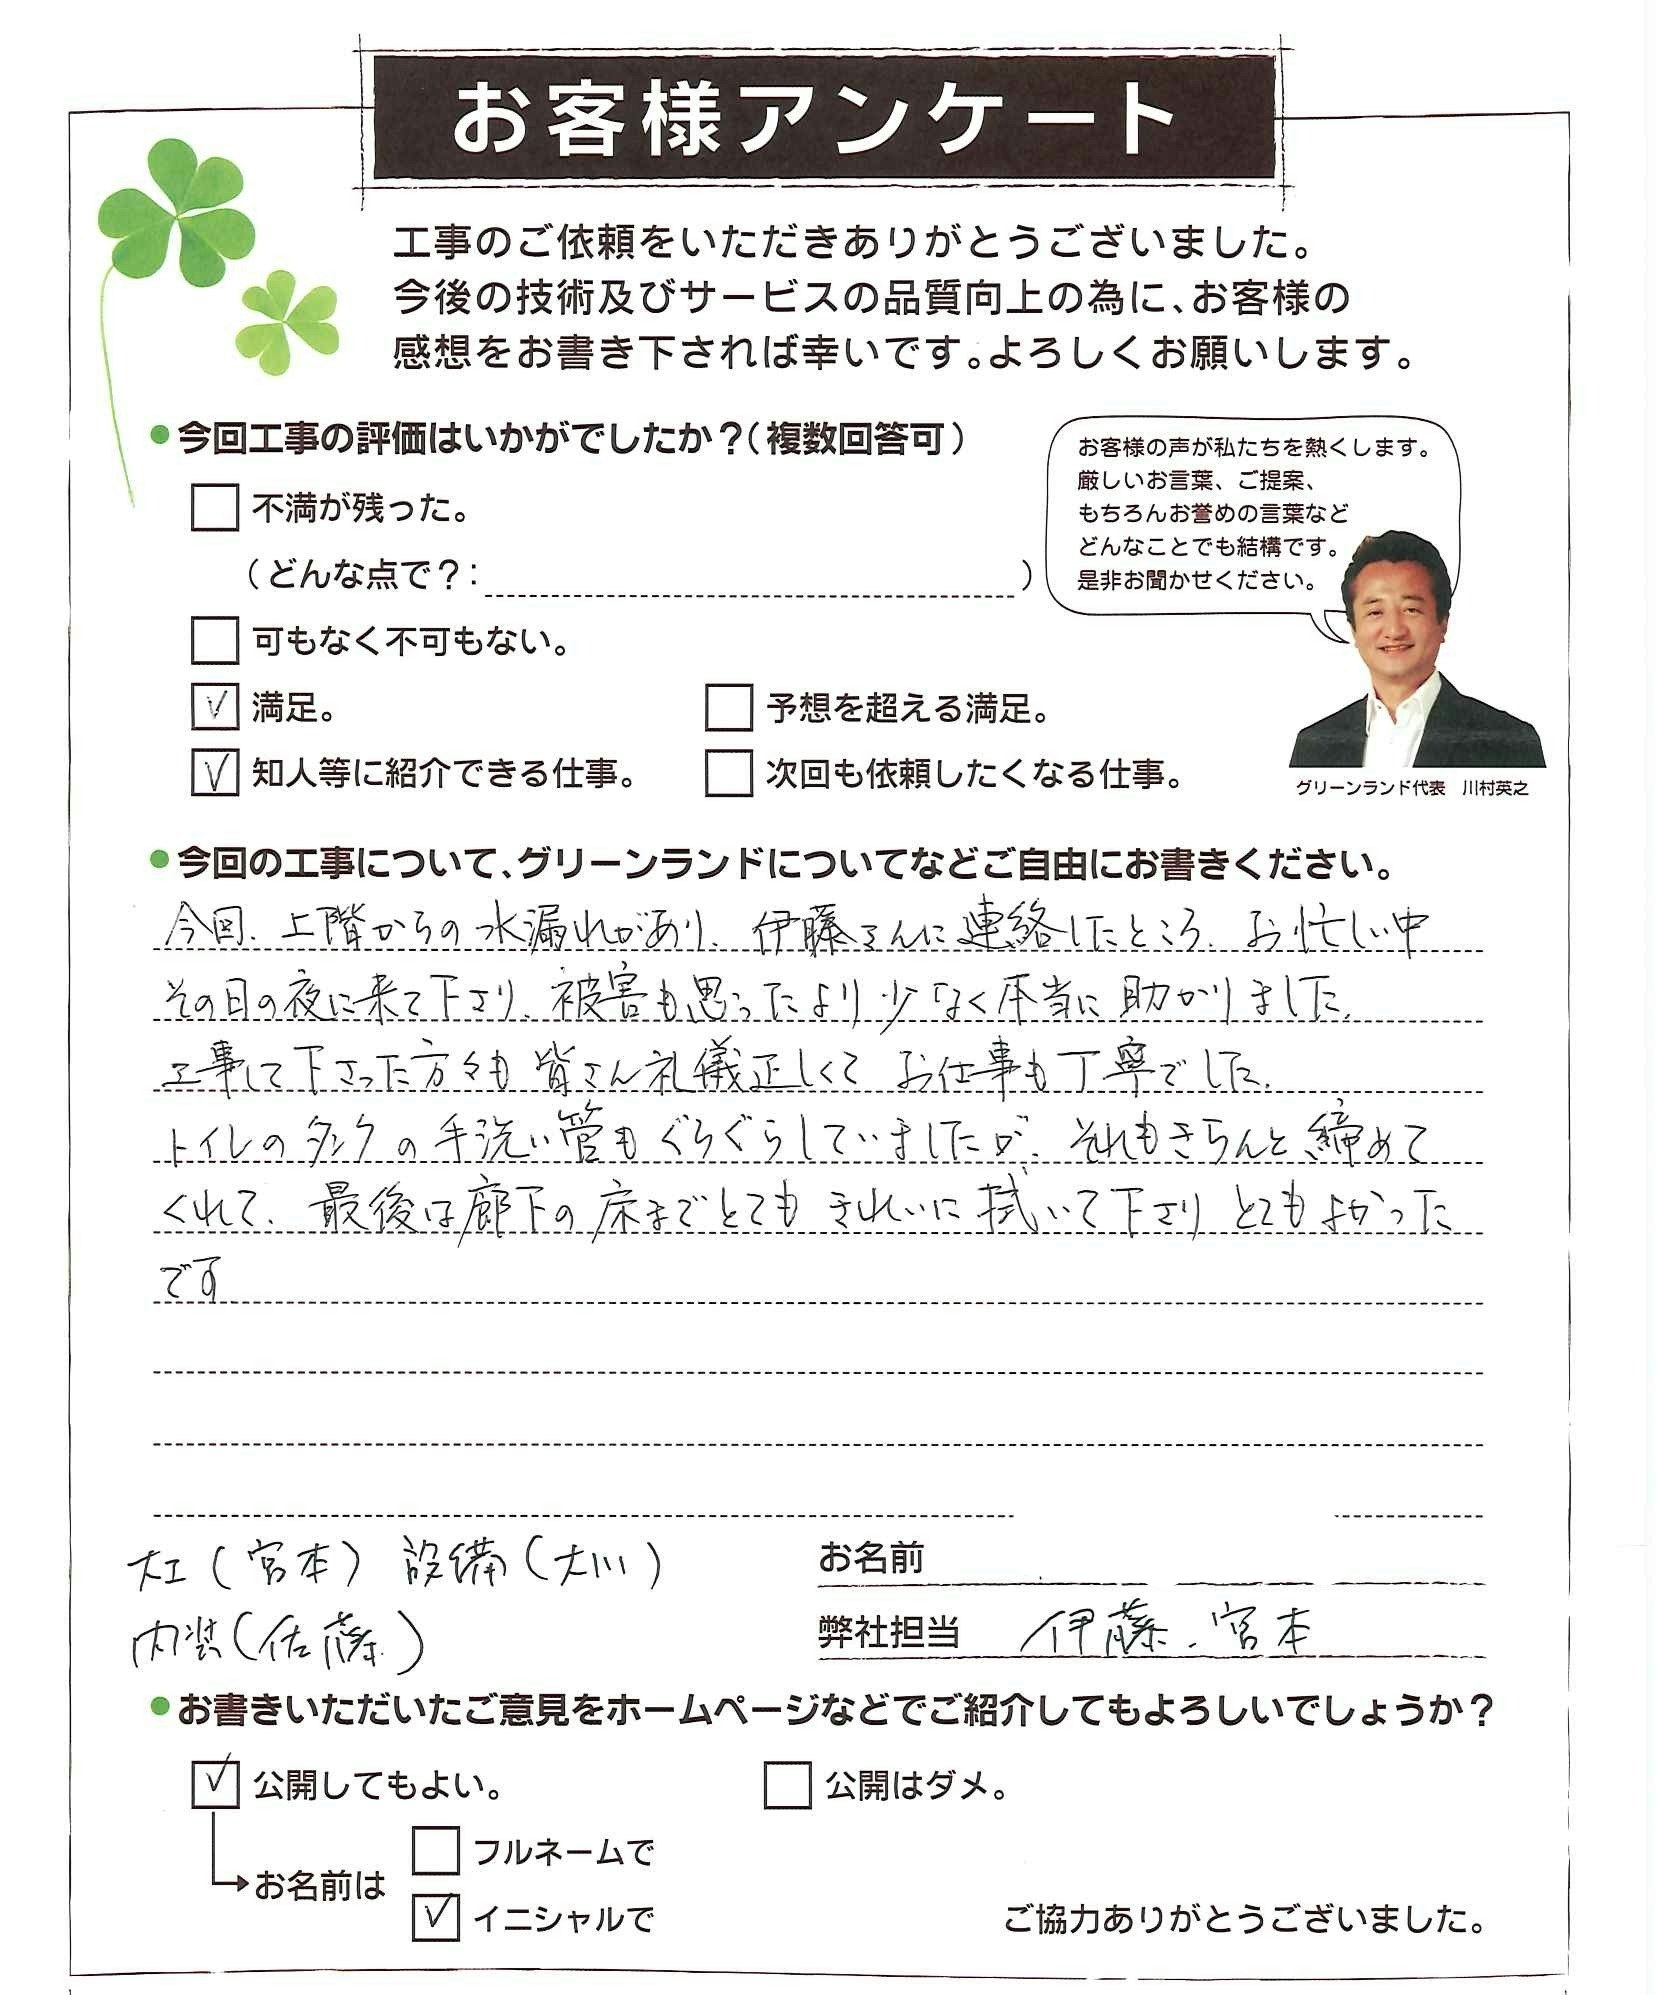 お客様アンケート
工事のご依頼をいただきありがとうございました。
今後の技術及びサービスの品質向上の為に、お客様の
感想をお書き下されば幸いです。よろしくお願いします。
●今回工事の評価はいかがでしたか?(複数回答可)
不満が残った。
(どんな点で?: )
可もなく不可もない。
✓ 満足。
予想を超える満足。
✓ 知人等に紹介できる仕事。
次回も依頼したくなる仕事。
お客様の声が私たちを熱くします。
厳しいお言葉、ご提案、
もちろんお誉めの言葉など
どんなことでも結構です。
是非お聞かせください。
グリーンランド代表 川村英之
●今回の工事について、グリーンランドについてなどご自由にお書きください。
今回、上階からの水漏れがあり、伊藤さんに連絡したところ、お忙しい中
その日の夜に来て下さり、被害も思ったより少なく本当に助かりました。
工事して下さった方々も皆さん礼儀正しくてお仕事も丁寧でした。
トイレのタンクの手洗い管もぐらぐらしていましたが、それもきちんと締めて
くれて、最後は廊下の床までとてもきれいに拭いて下さりとてもよかった
です
大工(宮本) 設備(大川)
内装(佐藤)
お名前
弊社担当 伊藤、宮本
●お書きいただいたご意見をホームページなどでご紹介してもよろしいでしょうか?
✓ 公開してもよい。
公開はダメ。
お名前は
フルネームで
✓ イニシャルで
ご協力ありがとうございました。